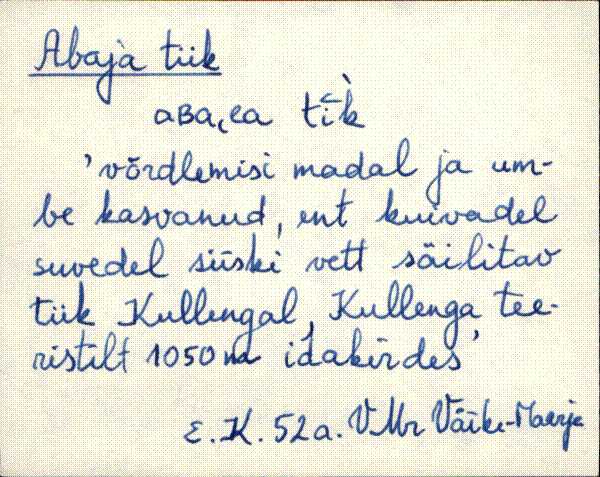 Abaja tiik
aʙaɪ̯ea tǐ̀k
'võrdlemisi madal ja um-
be kasvanud, ent kuivadel
suvedel siiski vett säilitav
tiik Kullengal, Kullenga tee-
ristilt 1050 m idakirdes'
E.K. 52a. VMr Väike-Maarja